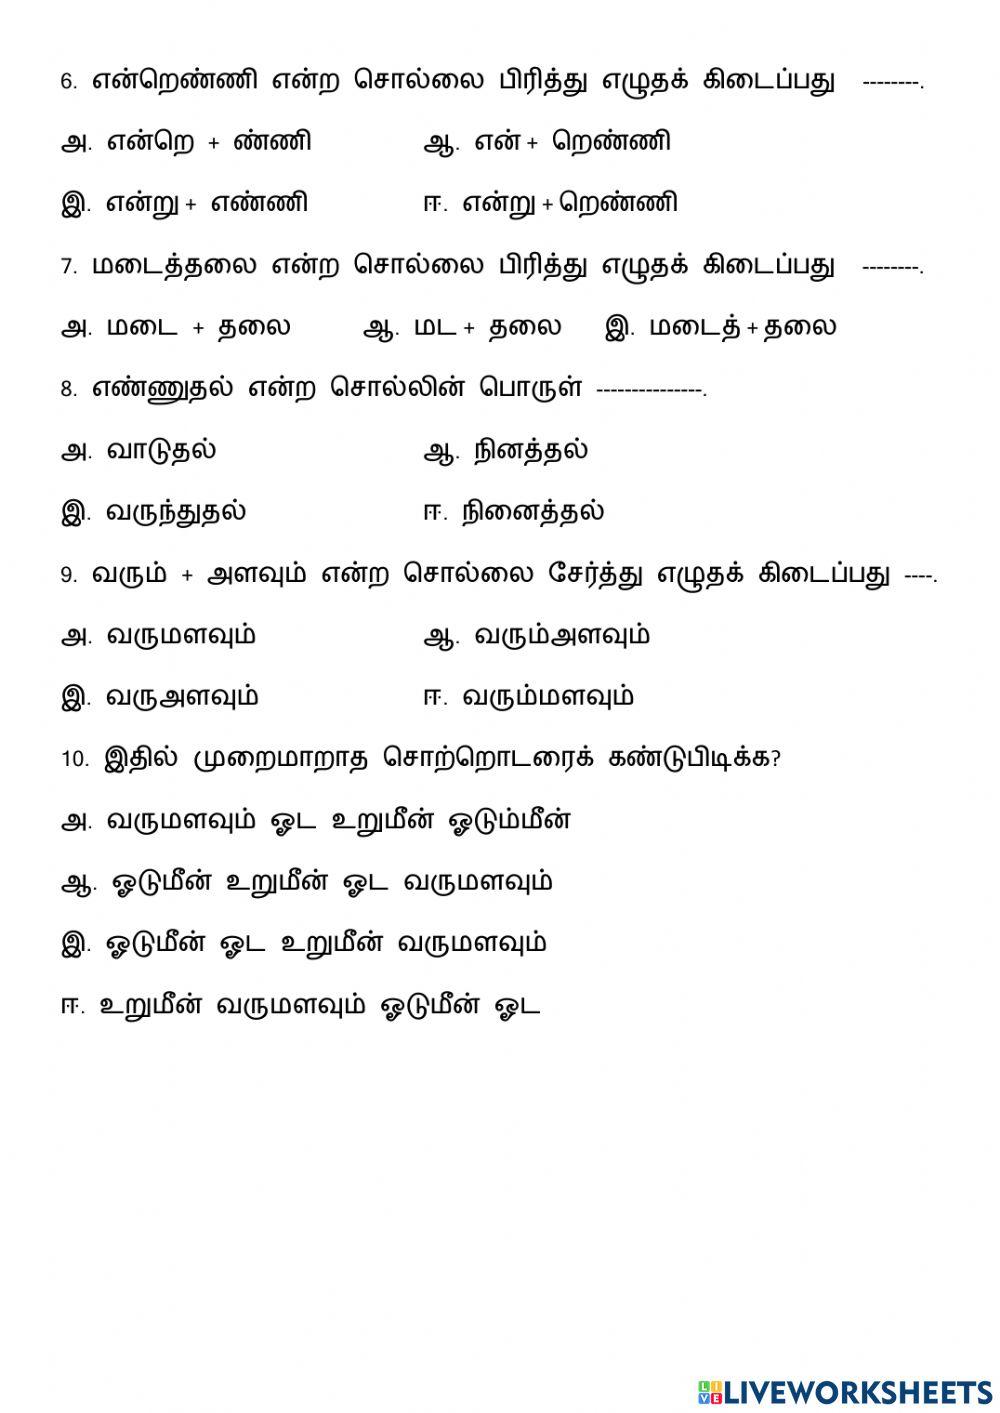 6. என்றெண்ணி என்ற சொல்லை பிரித்து எழுதக் கிடைப்பது --------.
அ. என்றெ + ண்ணி ஆ. என் + றெண்ணி
இ. என்று + எண்ணி ஈ. என்று + றெண்ணி
7. மடைத்தலை என்ற சொல்லை பிரித்து எழுதக் கிடைப்பது --------.
அ. மடை + தலை ஆ. மட + தலை இ. மடைத் + தலை
8. எண்ணுதல் என்ற சொல்லின் பொருள் ---------------.
அ. வாடுதல் ஆ. நினத்தல்
இ. வருந்துதல் ஈ. நினைத்தல்
9. வரும் + அளவும் என்ற சொல்லை சேர்த்து எழுதக் கிடைப்பது ----.
அ. வருமளவும் ஆ. வரும்அளவும்
இ. வருஅளவும் ஈ. வரும்மளவும்
10. இதில் முறைமாறாத சொற்றொடரைக் கண்டுபிடிக்க?
அ. வருமளவும் ஓட உறுமீன் ஓடும்மீன்
ஆ. ஓடுமீன் உறுமீன் ஓட வருமளவும்
இ. ஓடுமீன் ஓட உறுமீன் வருமளவும்
ஈ. உறுமீன் வருமளவும் ஓடுமீன் ஓட
LIVE LIVEWORKSHEETS